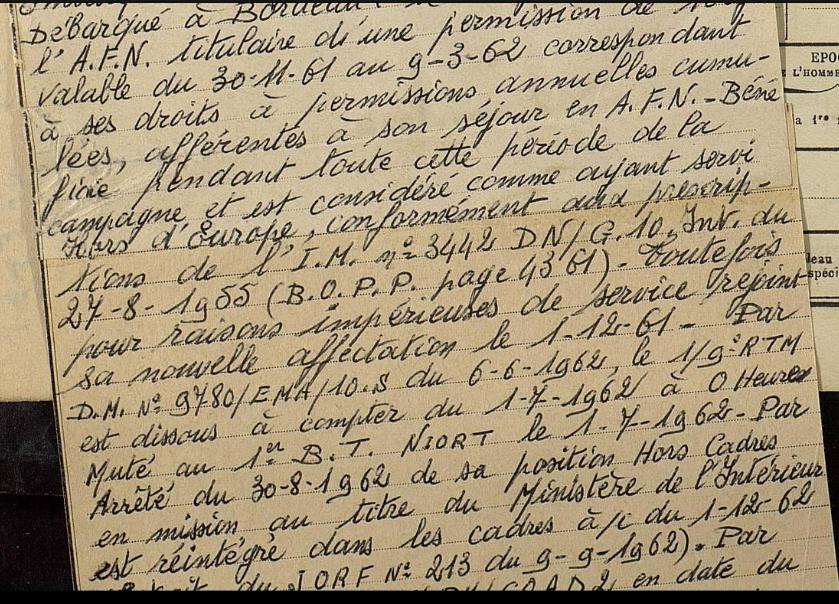 Débarqué à Bordeau
l'A.F.N. titulaire d'une permission de
valable du 30-11-61 au 9-3-62 correspondant
à ses droits à permissions annuelles cumu-
lées, afférentes à son séjour en A.F.N. - Béné
ficie pendant toute cette période de la
campagne et est considéré comme ayant servi
Hors d'Europe, conformément aux prescrip-
tions de l'I.M. n° 3442 DN/G.10.Int. du
27-8-1955 (B.O.P.P. page 4361) - toutefois
pour raisons impérieuses de service rejoint
sa nouvelle affectation le 1-12-61 - Par
D.M. N° 9780/EMA/10.S du 6-6-1962, le 1/9° RTM
est dissous à compter du 1-7-1962 à 0 Heures
Muté au 1er B.T. NIORT le 1-7-1962 - Par
Arrêté du 30-8-1962 de sa position Hors Cadres
en mission au titre du Ministère de l'Intérieur
est réintégré dans les cadres à/c du 1-12-62
du JORF N° 213 du 9-9-1962). Par
en date du
EPO
L'HOMME
a 1re
eau
spéci